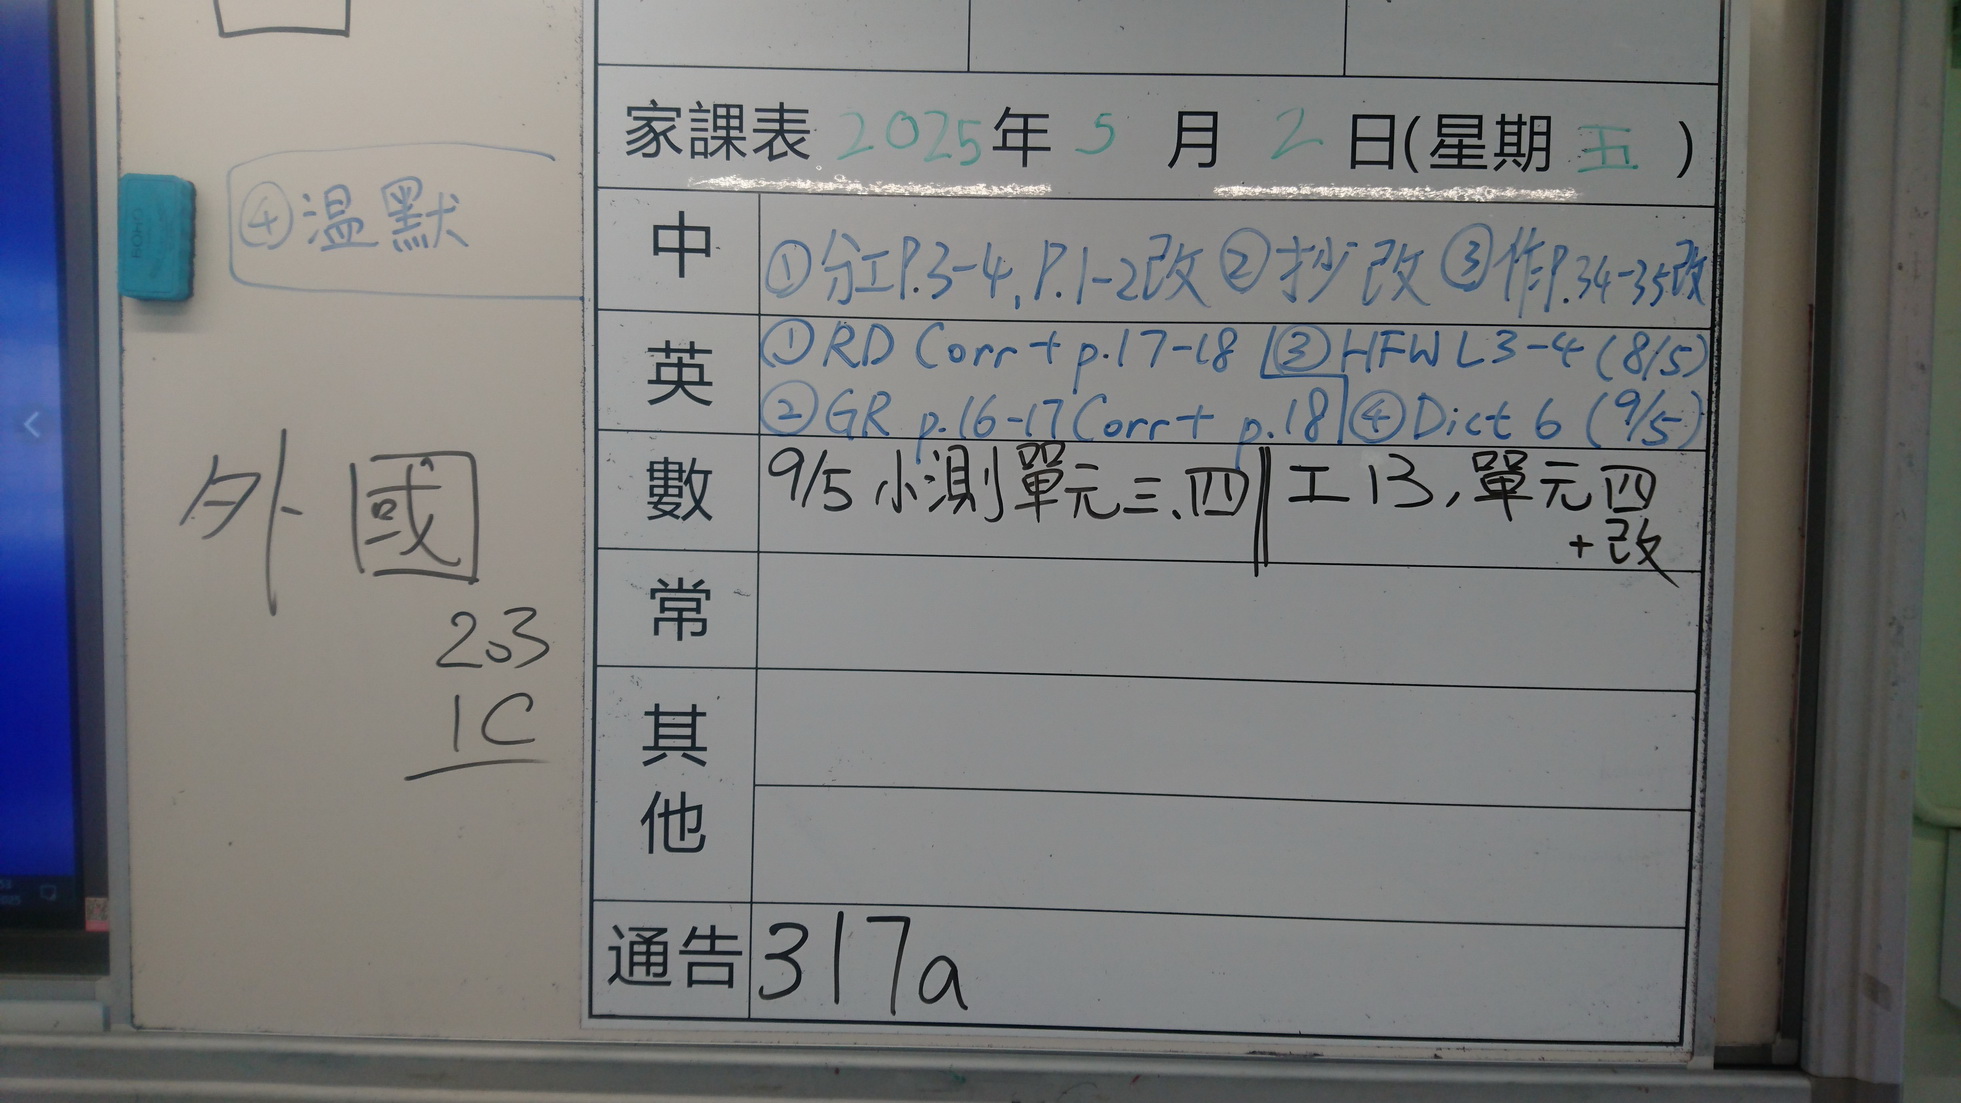 家課表 2025年 5 月 2 日(星期 五 )
④溫默
中 ①分工P.3-4, P.1-2改 ②抄改 ③作P.34-35改
英 ①RD Corr + p.17-18 ③HFW L3-4 (8/5)
②GR p.16-17 Corr + p.18 ④Dict 6 (9/5)
數 9/5 小測單元三、四 工13, 單元四
+改
外國
203
1C
常
其他
通告 317a